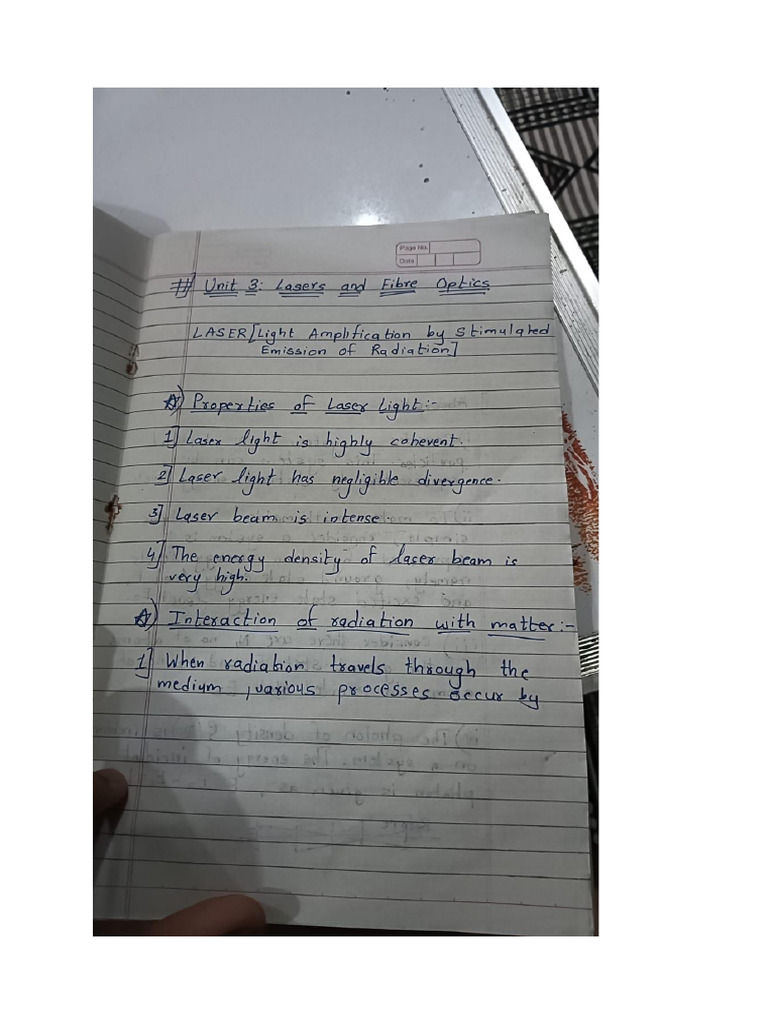 Page No.
Date
# Unit 3: Lasers and Fibre Optics
LASER [Light Amplification by Stimulated
Emission of Radiation]
☆) Properties of Laser Light:-
1] Laser light is highly cohevent.
2] Laser light has negligible divergence.
3] Laser beam is intense.
4] The energy density of laser beam is
very high.
☆) Interaction of radiation with matter:-
1] When radiation travels through the
medium, various processes occur by